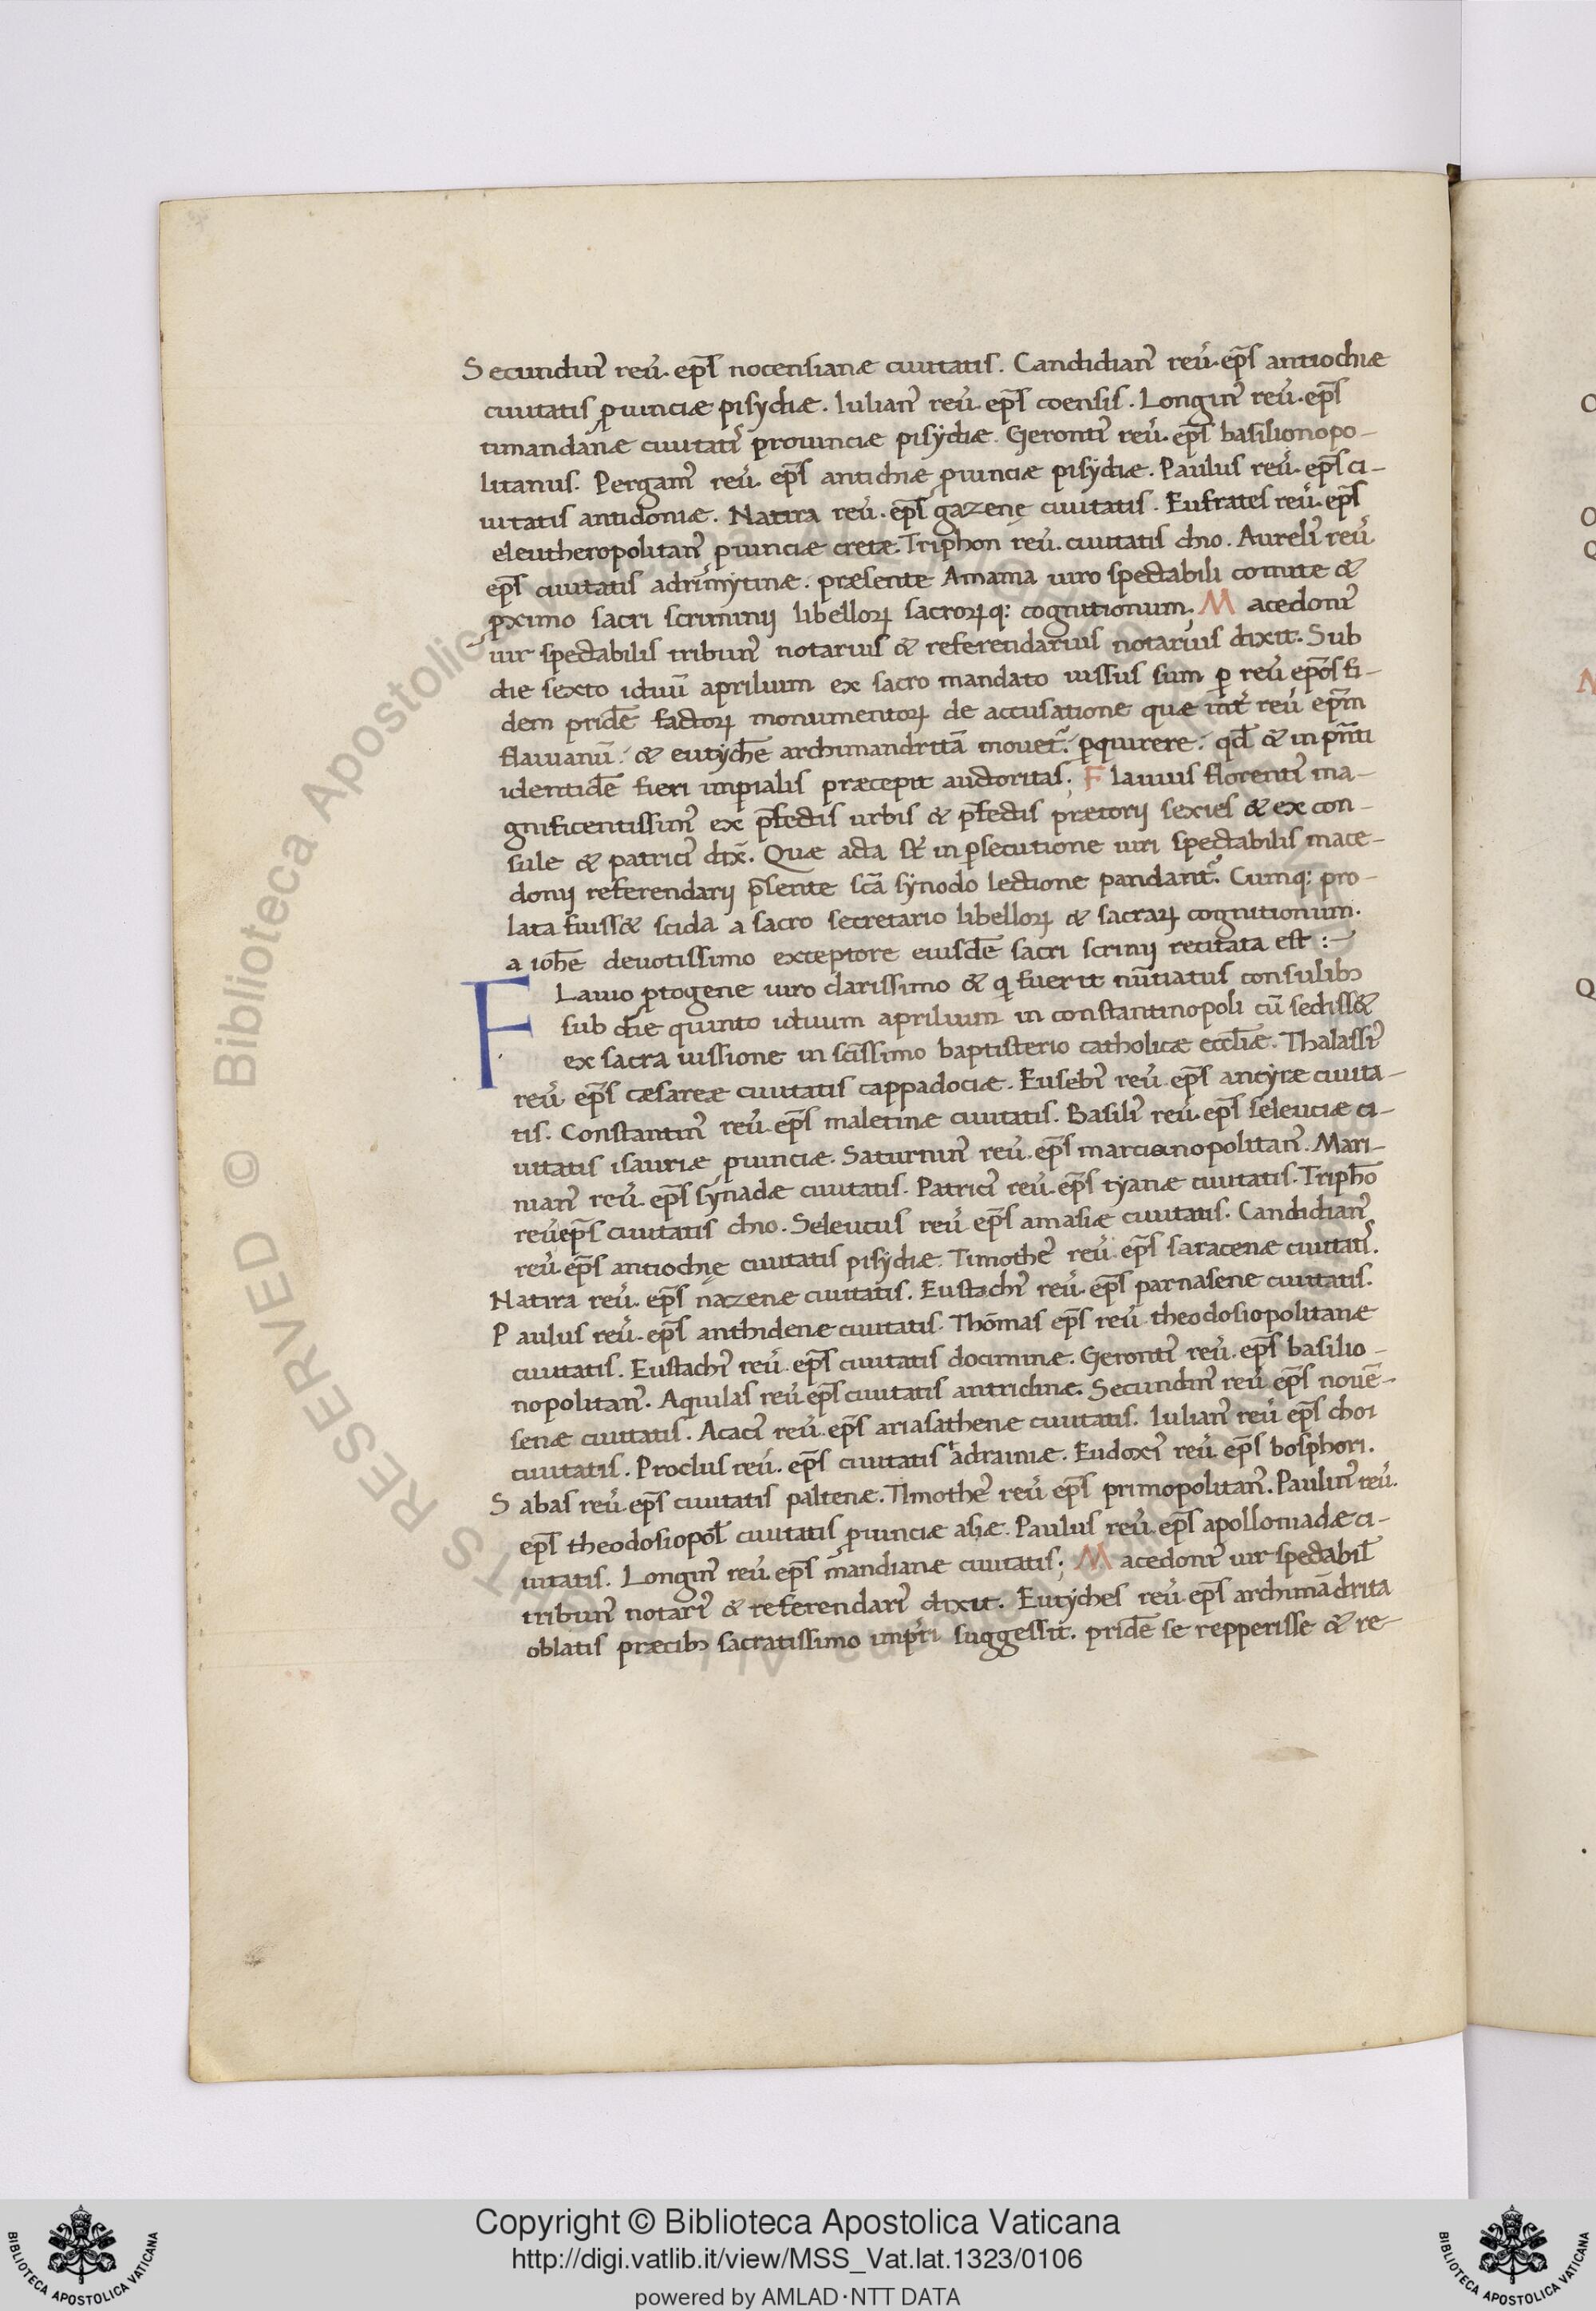 Secundin᷒ reu̅. ep̅s nocensianæ ciuitatis. Candidian᷒ reu̅. ep̅s antiochiæ
ciuitatis ꝓuinciæ pisydiæ. Iulian᷒ reu̅. ep̅s coensis. Longin᷒ reu̅. ep̅s
timandanæ ciuitati᷒ prouinciæ pisydiæ. Geronti᷒ reu̅. ep̅s basilionopo-
litanus. Pergam᷒ reu̅. ep̅s antichiæ ꝓuinciæ pisydiæ. Paulus reu̅. ep̅s ci-
uitatis antidoniæ. Natira reu̅. ep̅s gazenę ciuitatis. Eufrates reu̅. ep̅s
eleutheropolitan᷒ ꝓuinciæ cretæ. Triphon reu̅. ciuitatis chio. Aureli᷒ reu̅
ep̅s ciuitatis adrimytinæ. præsente Amama uiro spectabili comite &
ꝓximo sacri scriminij libelloꝝ sacroꝝq: cognitionum. Macedoni᷒
uir spectabilis tribun᷒ notarius & referendarius notarius dixit. Sub
die sexto iduu̅ apriliuın ex sacro mandato iussus sum ꝑ reu̅ ep̅os fi-
dem pride̅ factoꝝ monumentoꝝ de accusatione quæ int̅ reu̅ ep̅m
flauianu̅. & eutyche̅ archimandrita̅ mouet᷑. ꝑquirere. qd̅ & in pn̅ti
identide̅ fieri imꝑialis præcepit auctoritas; Flauius florenti᷒ ma-
gnificentissim᷒ ex p̅fectis urbis & p̅fectis prætorij sexies & ex con-
sule & patrici᷒ dix̅. Quæ acta st̅ in ꝑsecutione uiri spectabilis mace-
donij referendarij p̅sente sc̅a synodo lectione pandant᷑. Cumq: pro-
lata fuiss& scida a sacro secretario libelloꝝ & sacraꝝ cognitionum.
a ioh̅e deuotissimo exceptore eiusde̅ sacri scrinij recitata est :-
Flauio ꝓtogene uiro clarissimo & q̣ fuerit nu̅tiatus consulib;
sub die quinto iduum apriliuın in constantinopoli cu̅ sediss&
ex sacra iussione in sc̅issimo baptisterio catholicæ eccl̅iæ. Thalassi᷒
reu̅. ep̅s cæsareæ ciuitatis cappadociæ. Eusebi᷒ reu̅. ep̅s ancyræ ciuita-
tis. Constantin᷒ reu̅. ep̅s maletinæ ciuitatis. Basili᷒ reu̅. ep̅s seleuciæ ci-
uitatis isauriæ ꝓuinciæ. Saturnin᷒ reu̅. ep̅s marcianopolitan᷒. Mari-
nian᷒ reu̅. ep̅s synadæ ciuitatis. Patrici᷒ reu̅. ep̅s tyanæ ciuitatis. Tripho̅
reu̅ep̅s ciuitatis chio. Seleucus reu̅ ep̅s amasiæ ciuitatis. Candidian᷒
reu̅. ep̅s antiochię ciuitatis pisydiæ. Timothe᷒ reu̅. ep̅s saracenæ ciuitati᷒.
Natira reu̅. ep̅s nazenæ ciuitatis. Eustachi᷒ reu̅. ep̅s parnasenæ ciuitatis.
Paulus reu̅. ep̅s anthidenæ ciuitatis. Tho̅mas ep̅s reu̅. theodosiopolitanæ
ciuitatis. Eustachi᷒ reu̅. ep̅s ciuitatis dociminæ. Geronti᷒ reu̅. ep̅s basilio-
nopolitan᷒. Aquilas reu̅ ep̅s ciuitatis antridinæ. Secundin᷒ reu̅ ep̅s noue̅-
senæ ciuitatis. Acaci᷒ reu̅. ep̅s ariasathenæ ciuitatis. Iulian᷒ reu̅ ep̅s choi
ciuitatis. Proclus reu̅. ep̅s ciuitatis adrainiæ. Eudoxi᷒ reu̅. ep̅s bosphori.
Sabas reu̅. ep̅s ciuitatis paltenæ. Timothe᷒ reu̅ ep̅s primopolitan᷒. Paulin᷒ reu̅.
ep̅s theodosiopol̅ ciuitatis ꝓuinciæ asiæ. Paulus reu̅. ep̅s apolloniadæ ci-
uitatis. Longin᷒ reu̅. ep̅s mandianæ ciuitatis; Macedoni᷒ uir spectabil̅
tribun᷒ notari᷒ & referendari᷒ dixit. Eutyches reu̅. ep̅s archima̅drita
oblatis præcib; sacratissimo imp̅ri suggessit. pride̅ se repperisse & re-
Copyright © Biblioteca Apostolica Vaticana
http://digi.vatlib.it/view/MSS_Vat.lat.1323/0106
powered by AMLAD·NTT DATA